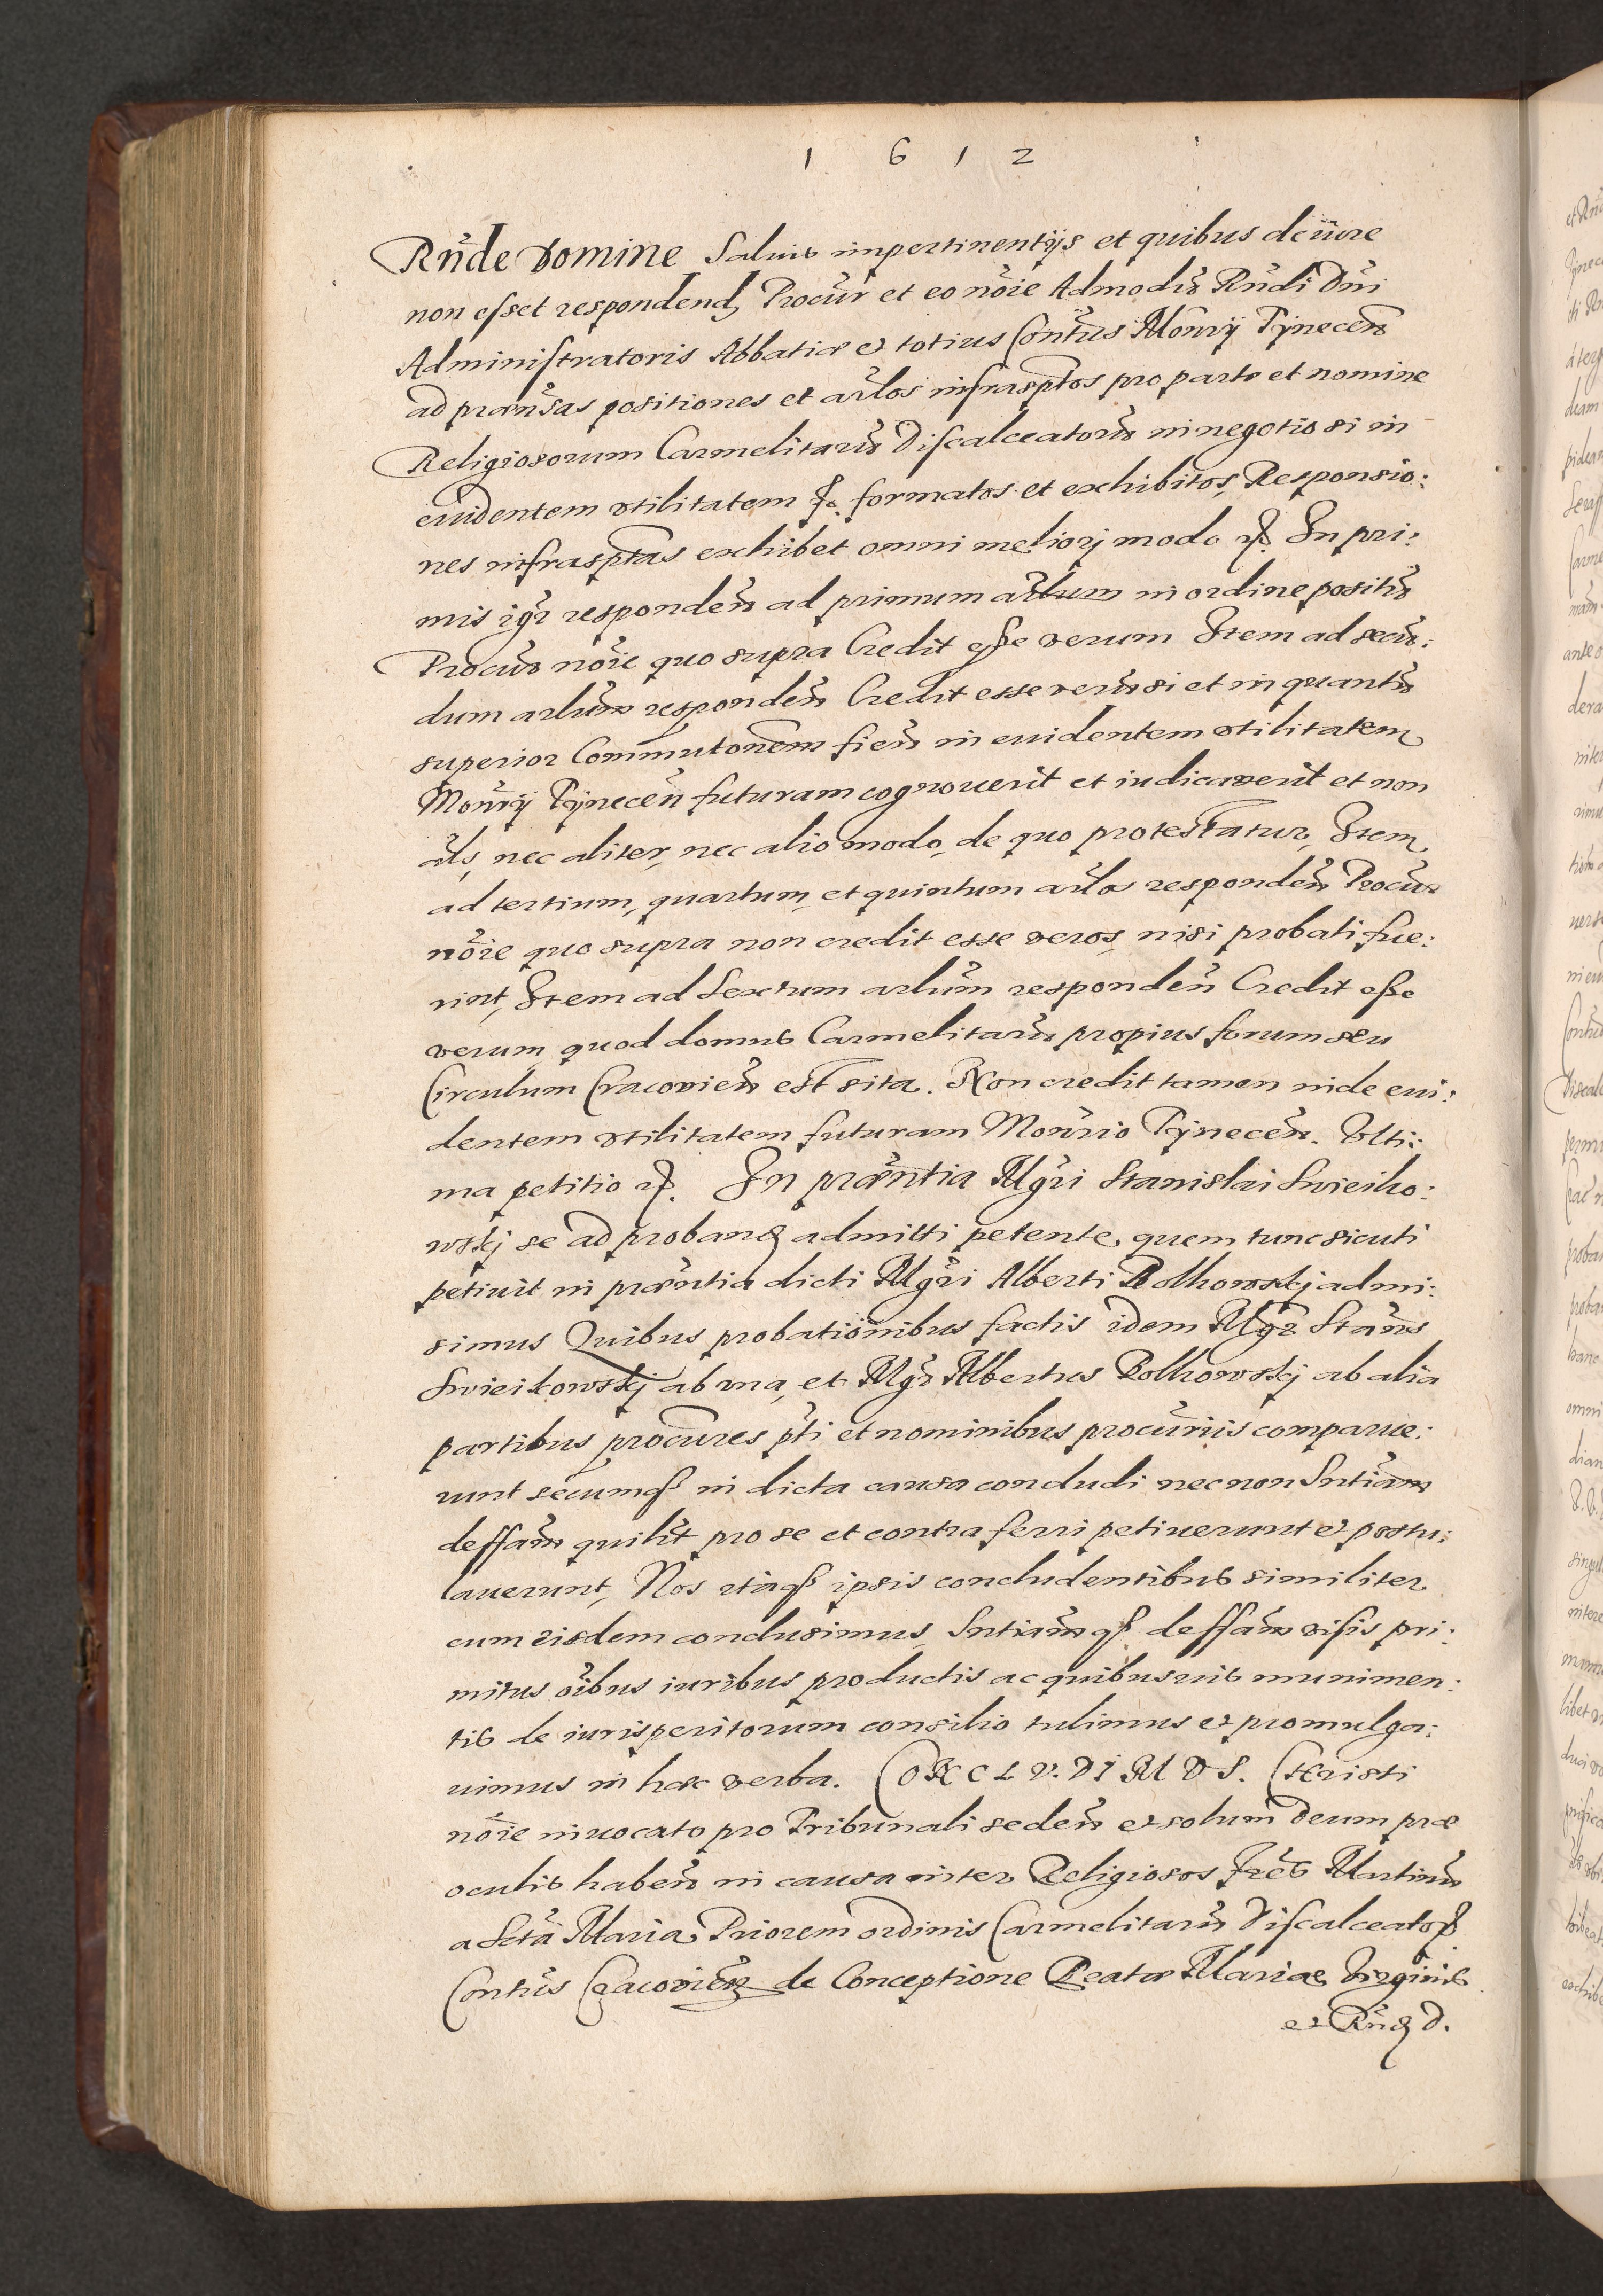 1 6 1 2
Rñde Domine Saluis impertinentijs et quibus de iure
non esset respondend, Procur et eo nõie Admodũ Rñdi Dñi
Administratoris Abbatiæ et totius Conũtus Moñrij Tÿnecen̄
ad præñsas positiones et arl̃os infrascp̃tos pro parte et nomine
Religiosorum Carmelitarũ Discalceatorũ in negotio si in
euidentem vtilitatem &c. formatos et exhibitos, Responsio:
nes infrascp̃tas exhibet omni meliorj modo &c. In pri:
mis igr̃ responden̄ ad primum arl̃um in ordine positũ
Procur̃ nõie quo supra Credit esse verum Item ad secũ:
dum arl̃um responden̄ Credit esse verũ si et in quantũ
superior Commutõnem fien̄ in euidentem vtilitatem
Moñrij Tÿnecen̄ futuram cognouerit et iudicauerit et non
als, nec aliter, nec alio modo, de quo protestatur, Item
ad tertium, quartum, et quintum arl̃os responden̄ Procur̃
nõie quo supra non credit esse veros, nisi probati fue:
rint, Item ad Sextum arl̃um responden̄ Credit esse
verum quod domus Carmelitarũ propius forum seu
Circulum Cracouien̄ est sita. Non credit tamen inde eui:
dentem vtilitatem futuram Moñrio Tÿnecen̄. Vlti:
ma petitio &c. In præñtia Mgr̃i Stanislai Swieiko:
wskj se ad proband admitti petente, quem tunc sicuti
petiuit in præñtia dicti Mgr̃i Alberti Rolkowskj admi:
simus Quibus probationibus factis idem Mgr̃ Stañs
Swieikowskj ab vna, et Mgr̃ Albertus Rolkowskj ab alia
partibus procũres p̃ti et nominibus procũrijs comparue:
runt secumq in dicta causa concludi necnon Sñtiam
deffam̃ quilib̃t pro se et contra ferri petiuerunt et postu:
lauerunt, Nos itaq ipsis concludentibus similiter
cum eisdem conclusimus, Sñtiam̃q deffam̃ visis pri:
mitus oĩbus iuribus productis ac quibusuis munimen:
tis de iurisperitorum consilio tulimus et promulga:
uimus in hæc verba. CONCLVDIMVS. Christi
nõie inuocato pro Tribunali seden̄ et solum Deum præ
oculis haben̄ in causa inter Religiosos Fr̃es Martinũ
a Sctã Maria Priorem ordinis Carmelitarũ Discalceator
Conũtus Cracouien̄ de Conceptione Beatæ Mariæ Virginis
et Rñd D.